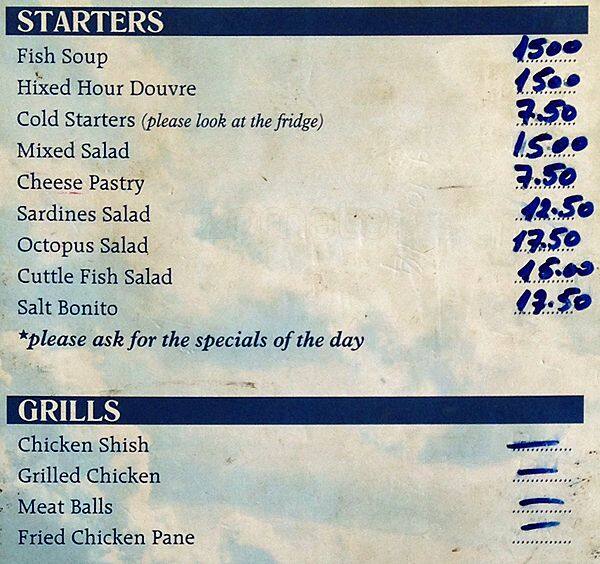 STARTERS
Fish Soup 1500
Hixed Hour Douvre 1500
Cold Starters (please look at the fridge) 7.50
Mixed Salad 15.00
Cheese Pastry 7.50
Sardines Salad 12.50
Octopus Salad 17.50
Cuttle Fish Salad 15.00
Salt Bonito 17.50
*please ask for the specials of the day
GRILLS
Chicken Shish —
Grilled Chicken —
Meat Balls —
Fried Chicken Pane —